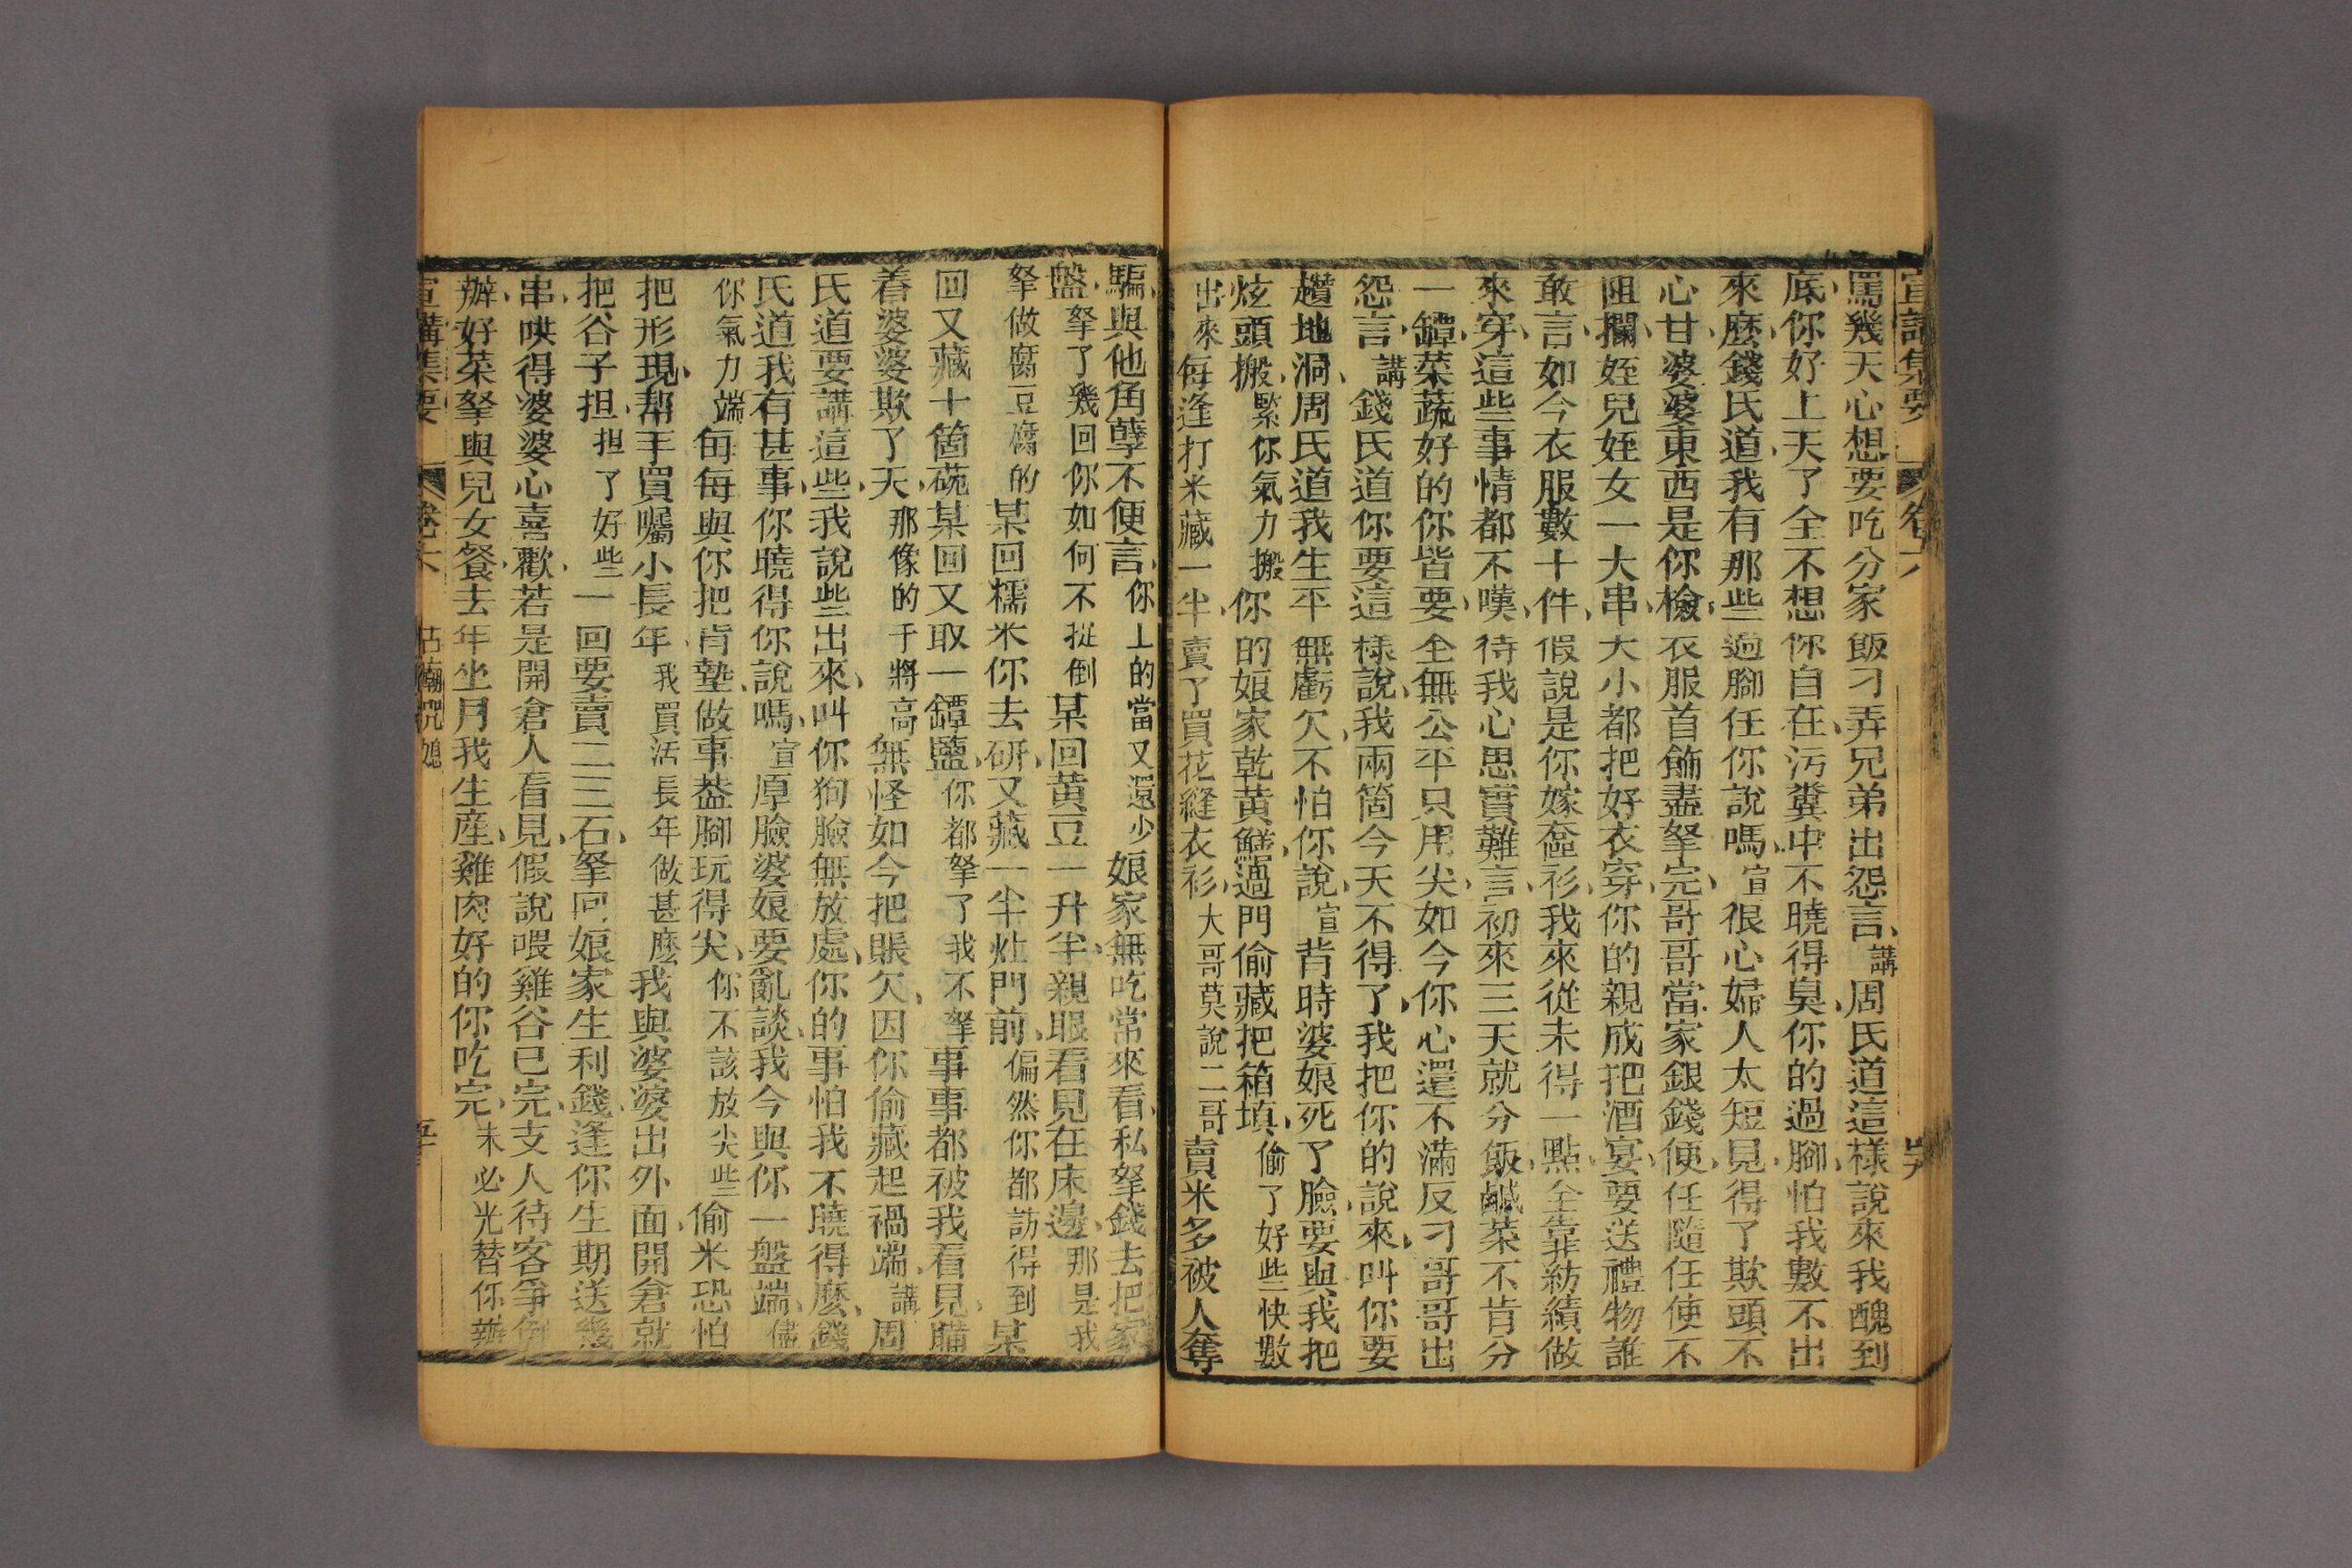 宣講集要 卷六
罵幾天心想要吃分家飯刁弄兄弟出怨言講周氏道這樣說來我醜到
底你好上天了全不想你自在污糞中不曉得臭你的過腳怕我數不出
來麼錢氏道我有那些過腳任你說嗎宣很心婦人太短見得了欺頭不
心甘婆婆東西是你檢衣服首飾盡拏完哥哥當家銀錢便任隨任使不
阻攔姪兒姪女一大串大小都把好衣穿你的親成把酒宴要送禮物誰
敢言如今衣服數十件假說是你嫁奩衫我來從未得一點全靠紡績做
來穿這些事情都不嘆待我心思實難言初來三天就分飯鹹菜不肯分
一罈菜蔬好的你皆要全無公平只用尖如今你心還不滿反刁哥哥出
怨言講錢氏道你要這樣說我兩箇今天不得了我把你的說來叫你要
趲地洞周氏道我生平無虧欠不怕你說宣背時婆娘死了臉要與我把
炫頭搬緊你氣力搬你的娘家乾黃鱔過門偷藏把箱填偷了好些快數
出來每逢打米藏一半賣了買花縫衣衫大哥莫說二哥賣米多被人奪
騙與他角孽不便言你上的當又還少娘家無吃常來看私拏錢去把家
盤拏了幾回你如何不從倒某回黃豆一升半親眼看見在床邊那是我
拏做腐豆腐的某回糯米你去研又藏一半灶門前偏然你都訪得到某
回又藏十箇碗某回又取一罈鹽你都拏了我不拏事事都被我看見瞞
着婆婆欺了天那像的于將高無怪如今把賬欠因你偷藏起禍端講周
氏道要講這些我說些出來叫你狗臉無放處你的事怕我不曉得麼錢
氏道我有甚事你曉得你說嗎宣厚臉婆娘要亂談我今與你一盤端儘
你氣力端每每與你把肯墊做事墊腳玩得尖你不該放尖些偷米恐怕
把形現幫手買囑小長年我買活長年做甚麼我與婆婆出外面開倉就
把谷子担担了好些一回要賣二三石拏回娘家生利錢逢你生期送幾
串哄得婆婆心喜歡若是開倉人看見假說喂雞谷已完支人待客爭倒
辦好菜拏與兒女餐去年坐月我生產雞肉好的你吃完未必光替你辦
宣講集要 卷六